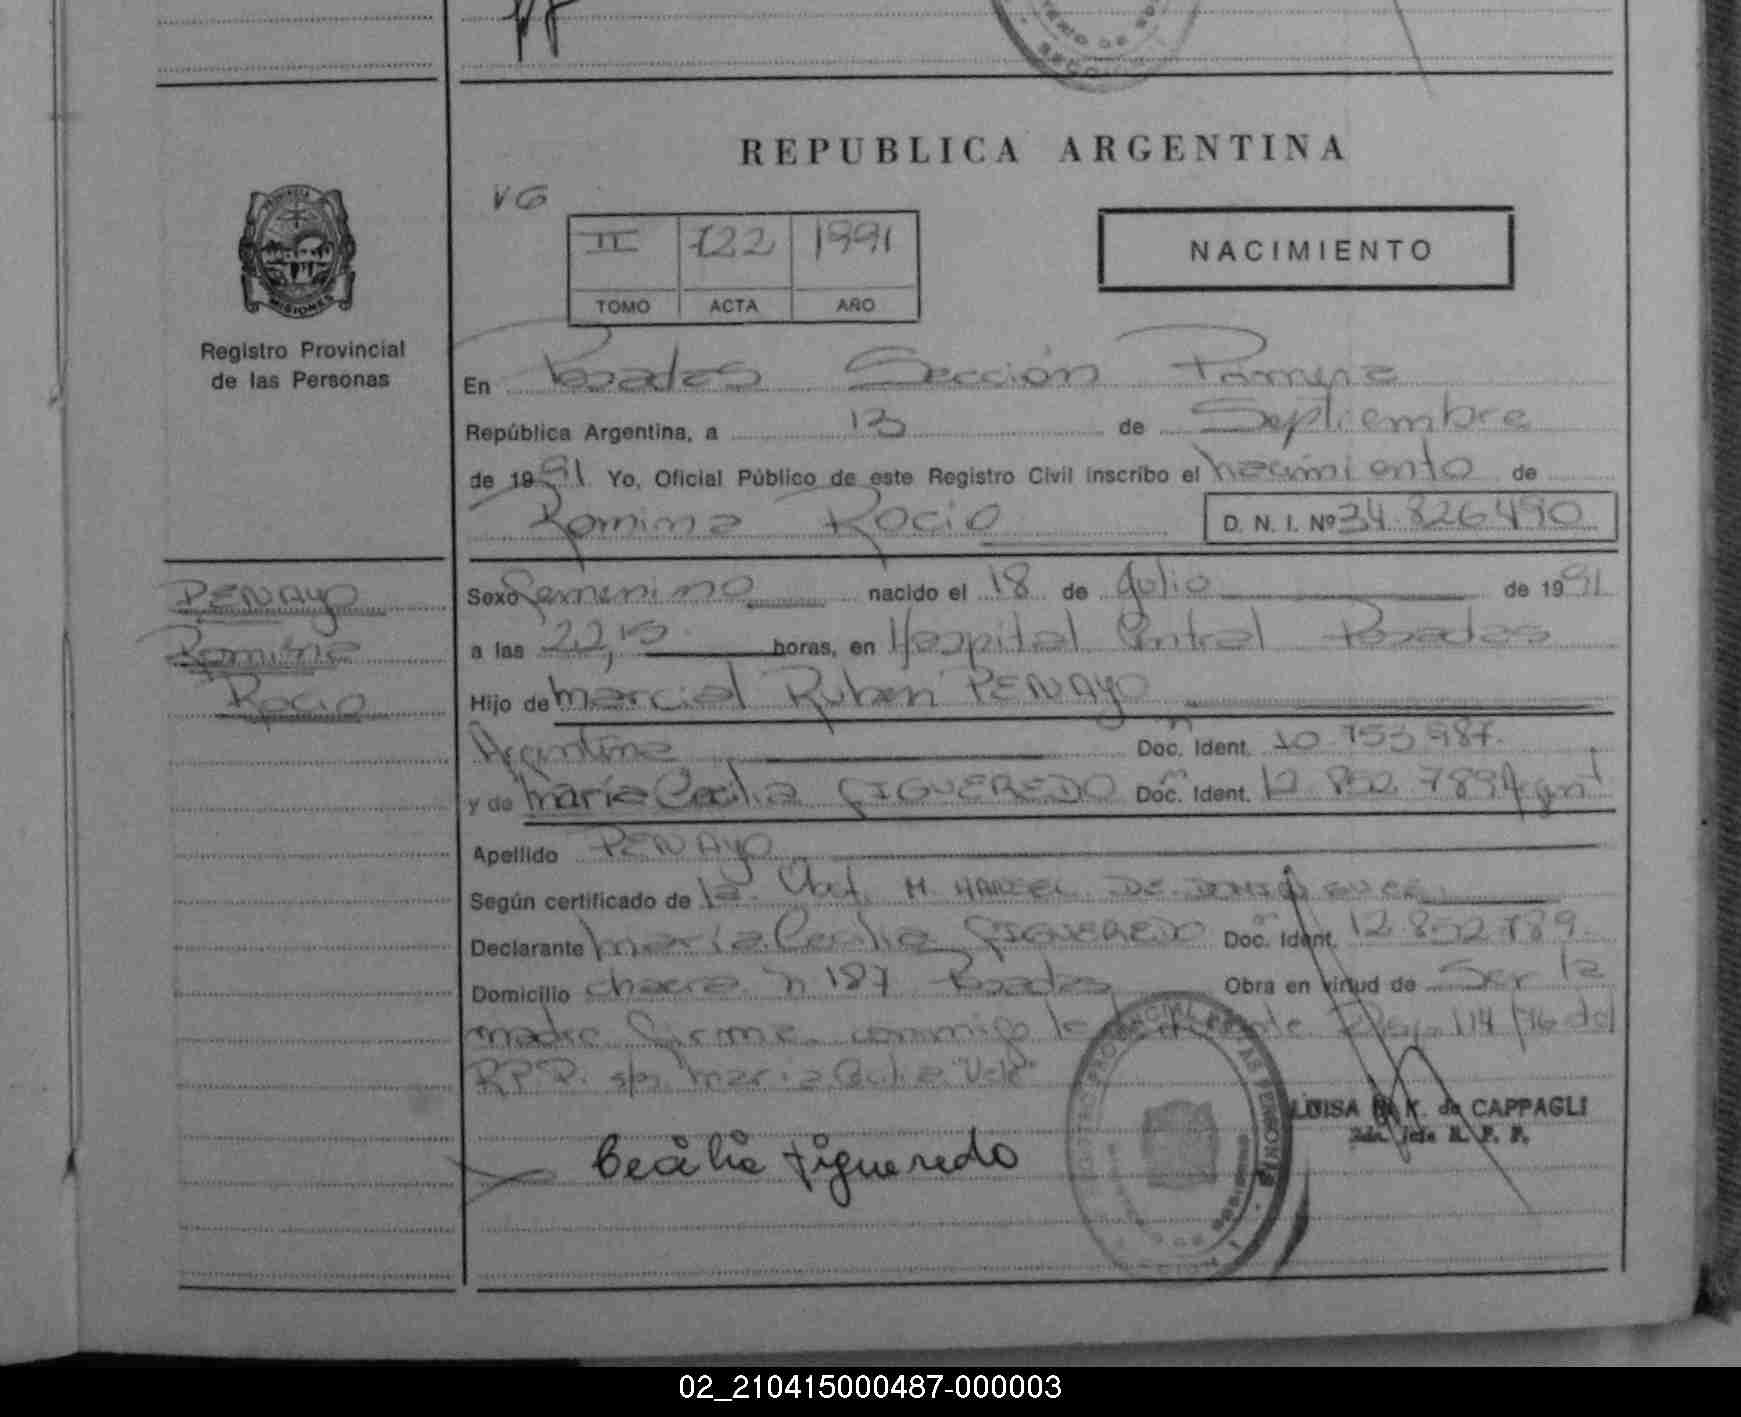 REPUBLICA ARGENTINA
VG
II 122 1991
TOMO ACTA AÑO
NACIMIENTO
PROVINCIA
MISIONES
Registro Provincial
de las Personas
En Posadas Sección Primera
República Argentina, a 13 de Septiembre
de 1991 Yo, Oficial Público de este Registro Civil inscribo el nacimiento de
Romina Rocio D. N. I. Nº 34.826.490
PENAYO
Romina
Rocio
Sexo Femenino nacido el 18 de Julio de 1991
a las 22,15 horas, en Hospital Central Posadas
Hijo de Marcial Ruben PENAYO
Argentina Doc. Ident. 10.753.987.
y de María Cecilia FIGUEREDO Doc. Ident. 12.852.789 Argent
Apellido PENAYO
Según certificado de la Obst. M. DE
Declarante María Cecilia FIGUEREDO Doc. Ident. 12.852.789.
Domicilio chacra n 187 Posadas Obra en virtud de Ser la
madre firma conmigo 114/76 del
R.P.P. s/r. María Cecilia "Vale"
LUISA K. de CAPPAGLI
2da. Jefe R. P. P.
Cecilia Figueredo
02_210415000487-000003